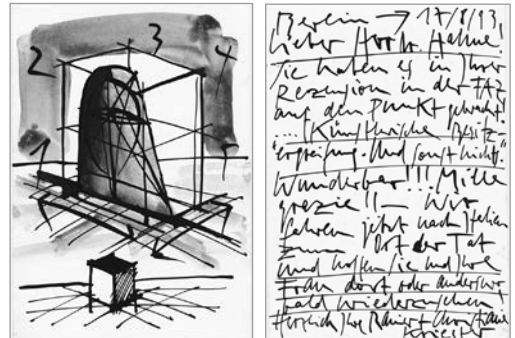 1
2
3
4
5
Berlin → 17/8/93
Lieber Horst Hahne!
Sie haben es in Ihrer
Rezension in der TAZ
auf den Punkt gebracht!
.... "Künstlerische Besitz-
ergreifung. Und sonst nichts."
Wunderbar!!! Mille
grazie!! — Wir
fahren jetzt nach Italien
zum Ort der Tat
und hoffen Sie und Ihre
Frau dort oder anderswo
bald wiederzusehen
Herzlich Ihre Rainer + Christiane
Kriester